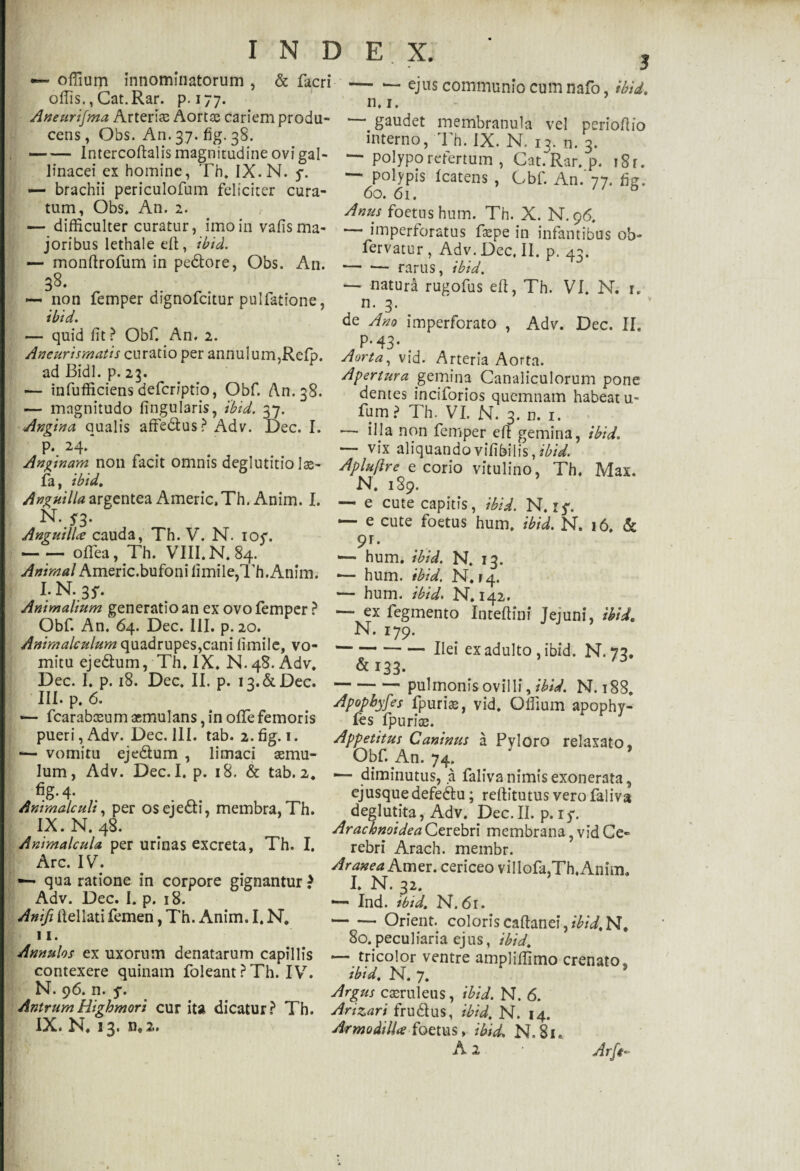 INDEX.
3
— ossium innominatorum, & sacri
ossis., Cat. Rar. p. 177.
Aneurisma Arteriæ Aortæ cariem produ-
cens, Obs. An. 37. fig. 38.
—— Intercostalis magnitudine ovi gal-
linacei ex homine, Th. IX. N. 5.
— brachii periculosum feliciter cura-
tum, Obs. An. 2.
— difficulter curatur, imo in vasis ma-
joribus lethale est, ibid.
— monstrosum in pectore, Obs. An.
38.
— non semper dignoscitur pulsatione,
ibid.
— quid sit? Obs. An. 2.
Aneurismatis curatio per annulum, Resp.
ad Bidl. p. 23.
— insufficiens descriptio, Obs. An. 38.
— magnitudo singularis, ibid. 37.
Angina qualis affectus? Adv. Dec. I.
p. 24.
Anginam non facit omnis deglutitio læ-
sa, ibid.
Anguilla argentea Americ. Th. Anim. I.
N. 53.
Anguillæ cauda, Th. V. N. 105.
—— ossea, Th. VIII. N. 84.
Animal Americ. bufoni simile, Th. Anim.
I. N. 35.
Animalium generatio an ex ovo semper?
Obs. An. 64. Dec. III. p. 20.
Animalculum quadrupes, cani simile, vo-
mitu ejectum, Th. IX. N. 48. Adv.
Dec. I. p. 18. Dec. II. p. 13. & Dec.
III. p. 6.
— scarabæum æmulans, in osse femoris
pueri, Adv. Dec. III. tab. 2. fig. 1.
— vomitu ejectum, limaci æmu-
lum, Adv. Dec. I. p. 18. & tab. 2.
fig. 4.
Animalculi, per os ejecti, membra, Th.
IX. N. 48.
Animalcula per urinas excreta, Th. I.
Arc. IV.
— qua ratione in corpore gignantur?
Adv. Dec. I. p. 18.
Anisi stellati semen, Th. Anim. I. N.
11.
Annulos ex uxorum denatarum capillis
contexere quinam soleant? Th. IV.
N. 96. n. 5.
Antrum Highmori cur ita dicatur? Th.
IX. N. 13. n. 2.
—— ejus communio cum naso, ibid.
n. 1.
— gaudet membranula vel periostio
interno, Th. IX. N. 13. n. 3.
— polypo refertum, Cat. Rar. p. 181.
— polypis scatens, Obs. An. 77. fig.
60. 61.
Anus foetus hum. Th. X. N. 96.
— imperforatus sæpe in infantibus ob-
servatur, Adv. Dec. II. p. 43.
—— rarus, ibid.
— naturâ rugosus est, Th. VI. N. 1.
n. 3.
de Ano imperforato, Adv. Dec. II.
p. 43.
Aorta, vid. Arteria Aorta.
Apertura gemina Canaliculorum pone
dentes incisorios quemnam habeat u-
sum? Th. VI. N. 3. n. 1.
— illa non semper est gemina, ibid.
— vix aliquando visibilis, ibid.
Aplustre e corio vitulino, Th. Max.
N. 189.
— e cute capitis, ibid. N. 15.
— e cute foetus hum. ibid. N. 16. &
91.
— hum. ibid. N. 13.
— hum. ibid. N. 14.
— hum. ibid. N. 142.
— ex segmento Intestini Jejuni, ibid.
N. 179.
———— Ilei ex adulto, ibid. N. 73.
& 133.
——— pulmonis ovilli, ibid. N. 188.
Apophyses spuriæ, vid. Ossium apophy-
ses spuriæ.
Appetitus Caninus à Pyloro relaxato,
Obs. An. 74.
— diminutus, à saliva nimis exonerata,
ejusque defectu; restitutus vero saliva
deglutita, Adv. Dec. II. p. 15.
Arachnoidea Cerebri membrana, vid Ce-
rebri Arach. membr.
Aranea Amer. cericeo villosa, Th. Anim.
I. N. 32.
— Ind. ibid. N. 61.
—— Orient. coloris castanei, ibid. N.
80. peculiaria ejus, ibid.
— tricolor ventre amplissimo crenato,
ibid. N. 7.
Argus cæruleus, ibid. N. 6.
Arizari fructus, ibid. N. 14.
Armodillæ foetus, ibid. N. 81.
A 2
Arse-